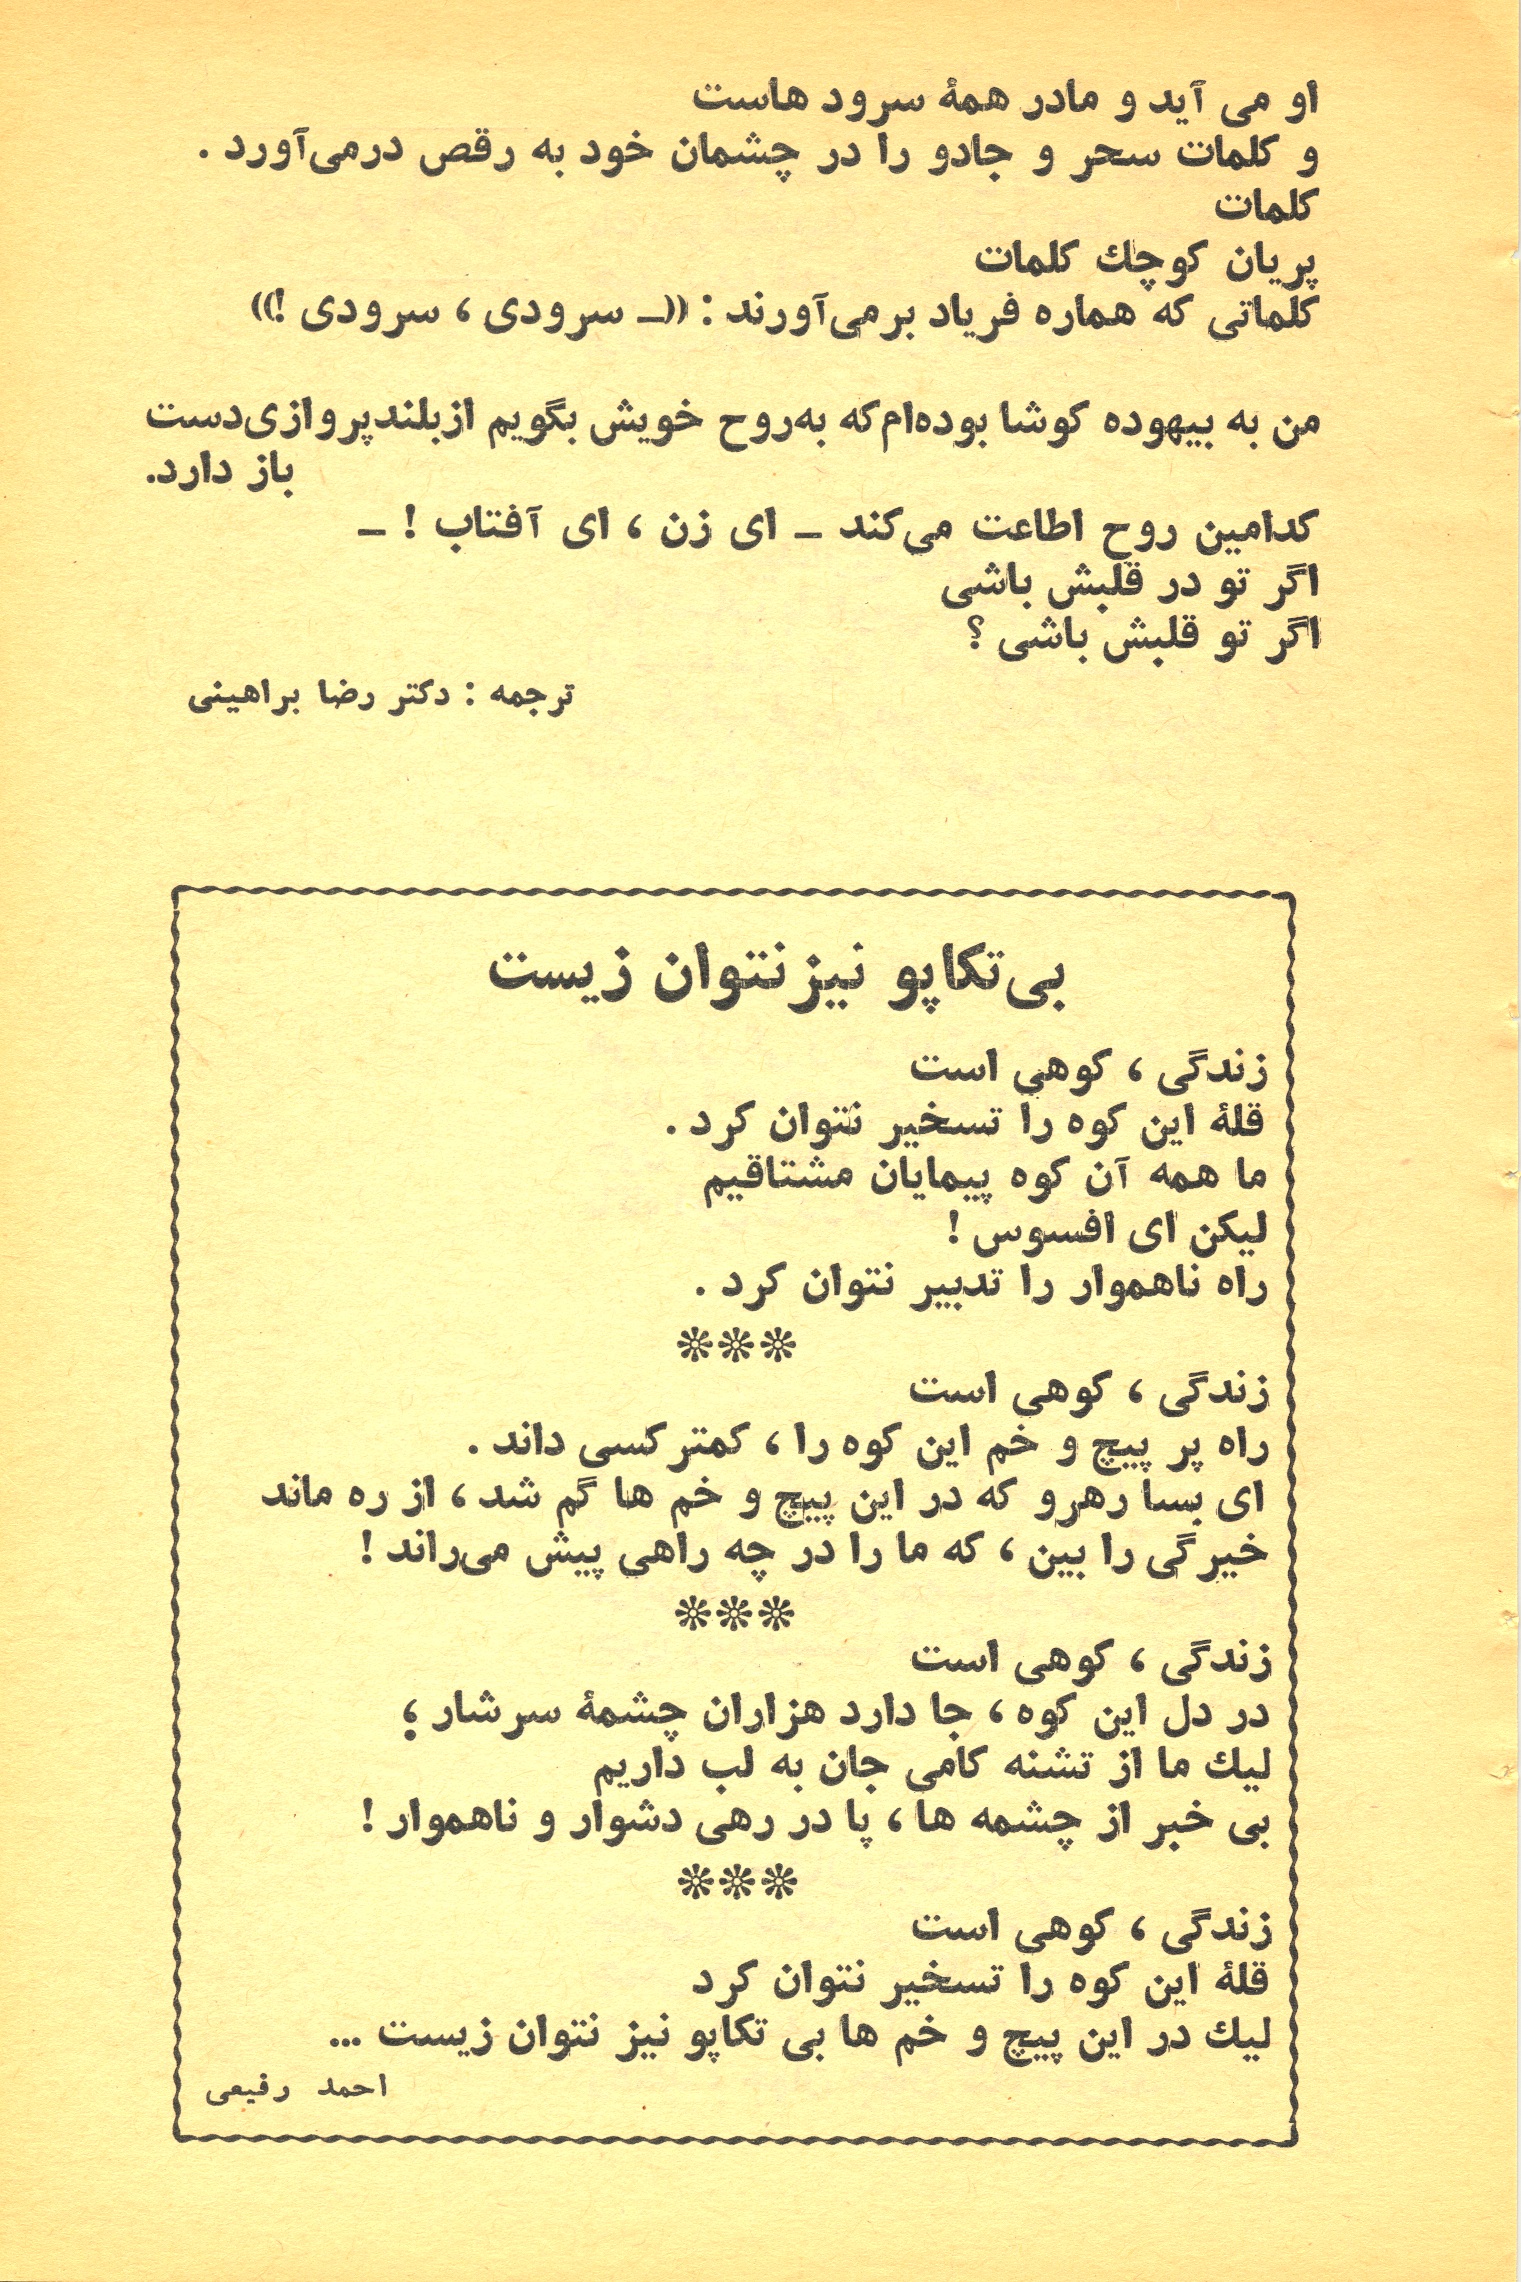 او می آید و مادر همهٔ سرود هاست
و کلمات سحر و جادو را در چشمان خود به رقص درمی‌آورد .
کلمات
پریان کوچك کلمات
کلماتی که هماره فریاد برمی‌آورند : ((ــ سرودی ، سرودی !))
من به بیهوده کوشا بوده‌ام که به‌روح خویش بگویم ازبلندپروازی‌دست
باز دارد.
کدامین روح اطاعت می‌کند ــ ای زن ، ای آفتاب ! ــ
اگر تو در قلبش باشی
اگر تو قلبش باشی ؟
ترجمه : دکتر رضا براهینی
بی‌تکاپو نیز نتوان زیست
زندگی ، کوهی است
قلهٔ این کوه را تسخیر نتوان کرد .
ما همه آن کوه پیمایان مشتاقیم
لیکن ای افسوس !
راه ناهموار را تدبیر نتوان کرد .
❊❊❊
زندگی ، کوهی است
راه پر پیچ و خم این کوه را ، کمتر کسی داند .
ای بسا رهرو که در این پیچ و خم ها گم شد ، از ره ماند
خیرگی را بین ، که ما را در چه راهی پیش می‌راند !
❊❊❊
زندگی ، کوهی است
در دل این کوه ، جا دارد هزاران چشمهٔ سرشار ؛
لیك ما از تشنه کامی جان به لب داریم
بی خبر از چشمه ها ، پا در رهی دشوار و ناهموار !
❊❊❊
زندگی ، کوهی است
قلهٔ این کوه را تسخیر نتوان کرد
لیك در این پیچ و خم ها بی تکاپو نیز نتوان زیست ...
احمد رفیعی